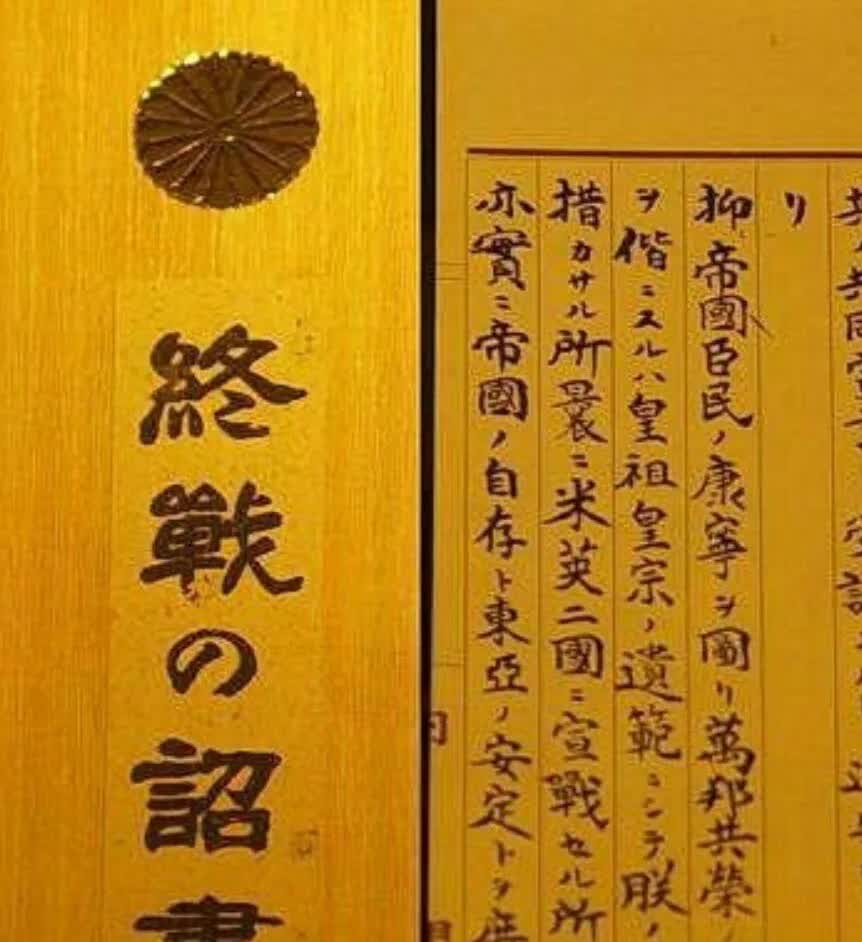 終戰の詔書
リ
抑帝國臣民ノ康寧ヲ圖リ萬邦共榮ノ
ヲ偕ニスルハ皇祖皇宗ノ遺範ニシテ朕ノ
措カサル所曩ニ米英二國ニ宣戰セル所
亦實ニ帝國ノ自存ト東亞ノ安定トヲ庶